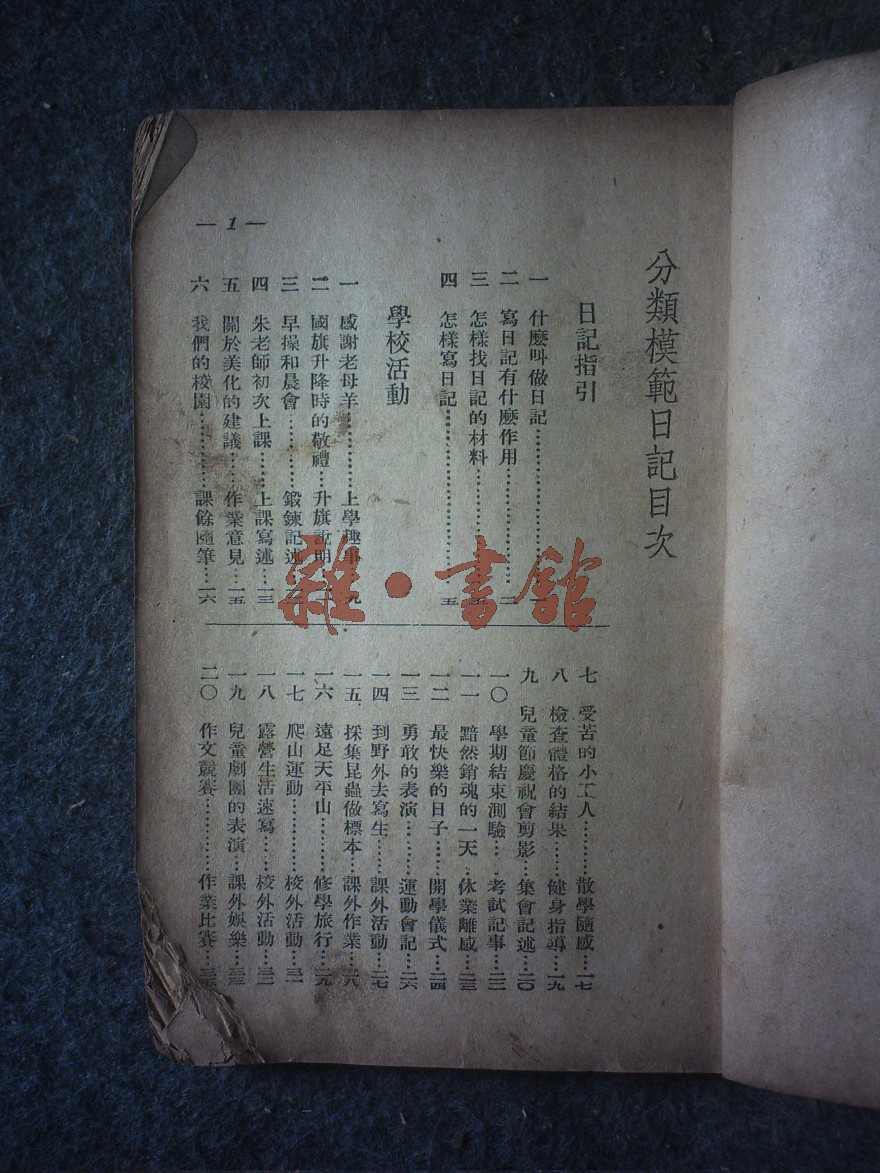 分類模範日記目次
日記指引
一 什麼叫做日記
二 寫日記有什麼作用
三 怎樣找日記的材料
四 怎樣寫日記……五
學校活動
一 感謝老母羊……上學趣事……九
二 國旗升降時的敬禮…升旗說明
三 早操和晨會……鍛鍊記述
四 朱老師初次上課……上課寫述…一三
五 關於美化的建議……作業意見…一五
六 我們的校園……課餘隨筆…一六
—1—
七 受苦的小工人……散學隨感…一七
八 檢查體格的結果……健身指導…一九
九 兒童節慶祝會剪影…集會記述…二〇
一〇 學期結束測驗…考試記事…二二
一一 黯然銷魂的一天…休業離感…二三
一二 最快樂的日子……開學儀式…二四
一三 勇敢的表演……運動會記…二六
一四 到野外去寫生……課外活動…二七
一五 採集昆蟲做標本…課外作業…二八
一六 遠足天平山……修學旅行…二九
一七 爬山運動……校外活動…三一
一八 露營生活速寫……校外活動…三二
一九 兒童劇團的表演…課外娛樂…三三
二〇 作文競賽……作業比賽
雜·書館